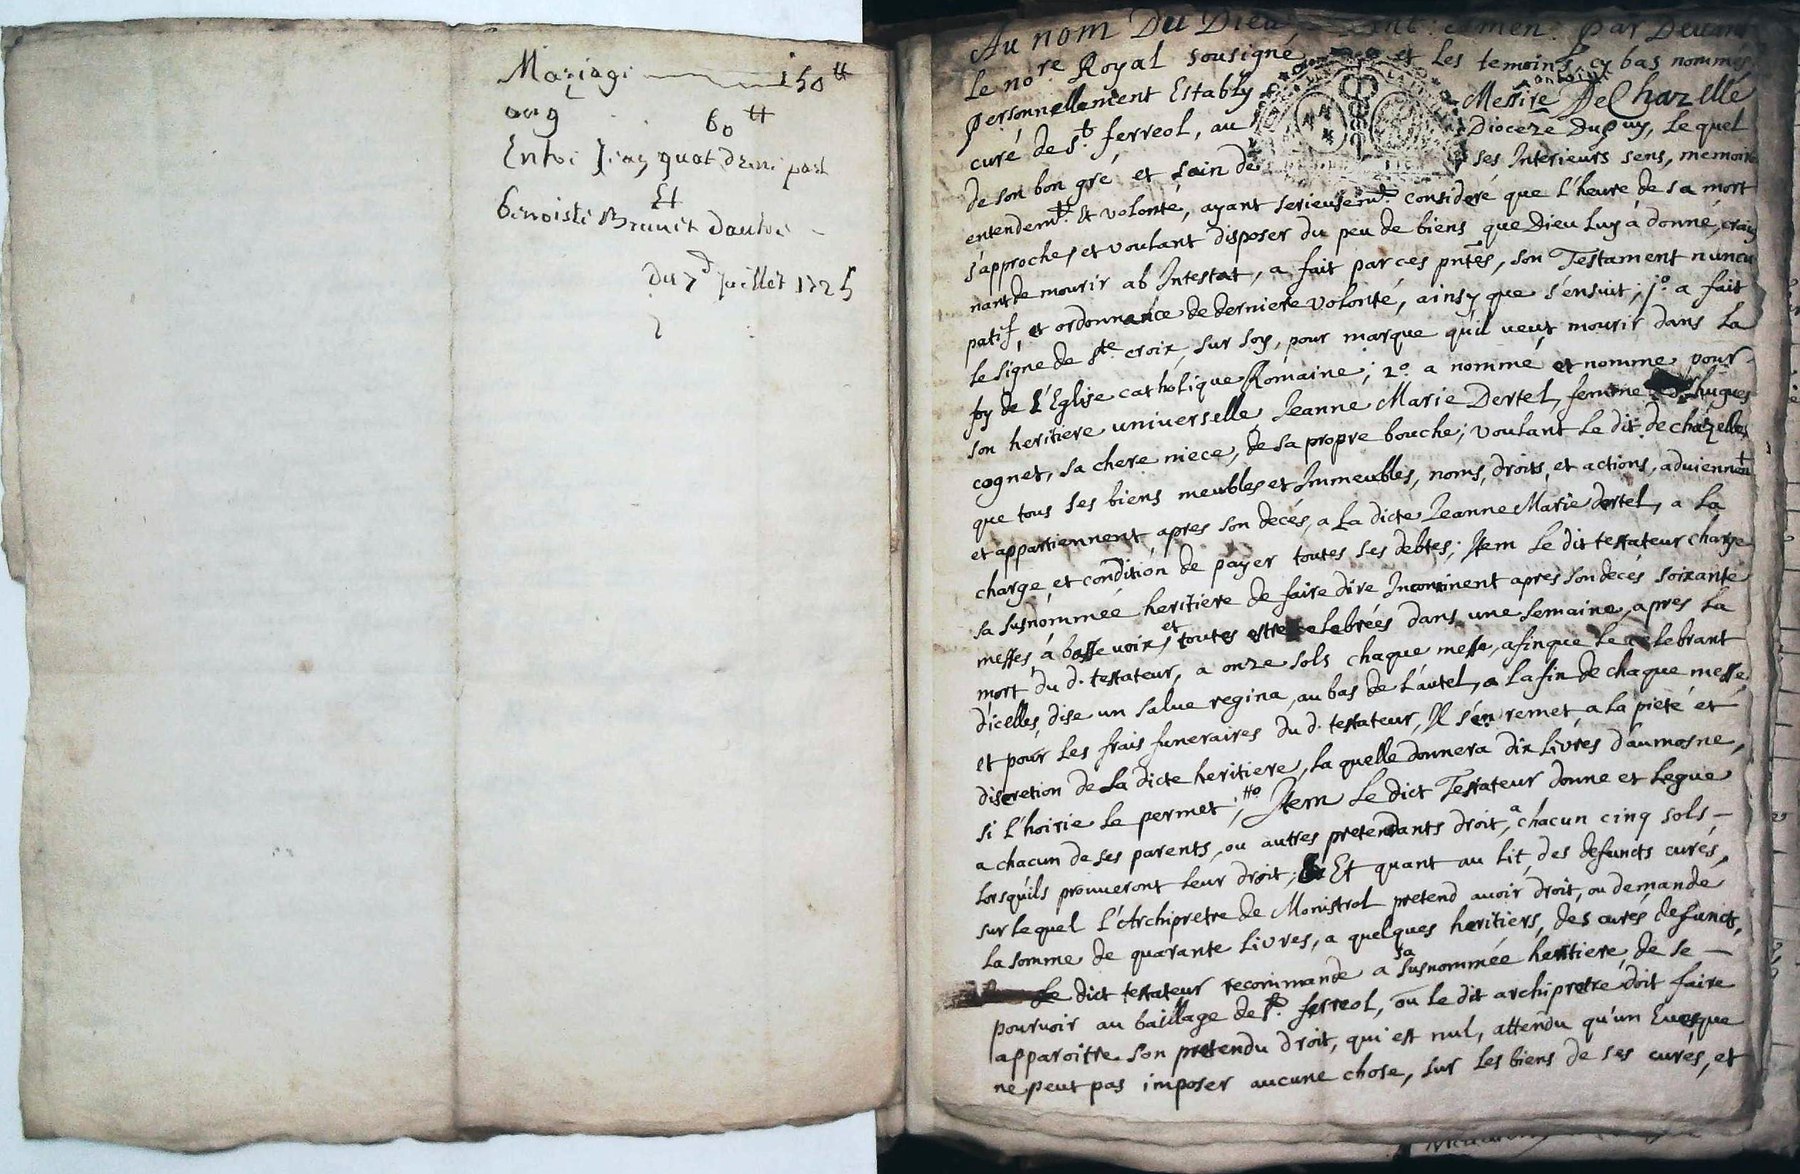 Mariage 150 ₶
aug 60 ₶
Entre Jean quat d'une part
Et
benoiste Brunet d'autre
du 7e Juillet 1725
Au nom Du Dieu amen. Par Devant
Le nore Royal sousigné et les temoins cy bas nommés
personnellement Estably Messire antoine De Chazelle
curé de St. ferreol, au Dioceze du puy, Le quel
de son bon gré et sain de ses Interieurs sens, memoire
entendemt. Et volonté, ayant serieusemt. consideré que l'heure de sa mort
s'approche, et voulant disposer du peu de biens que dieu Luy à donné, craig
nant de mourir ab Intestat, a fait par ces pntes, son Testament nuncu
patif, et ordonnance de derniere volonté, ainsy que s'ensuit; 1o. a fait
le signe de ste. croix, sur soy, pour marque qu'il veut mourir dans La
foy de L'Eglise catholique Romaine; 2o. a nommé et nomme pour
son heritiere universelle, Jeanne Marie Dertel, femme hugues
cognet, sa chere niece, de sa propre bouche; voulant Le dit de chazelles
que tous ses biens meubles et Immeubles, noms, droits, et actions, adviennent
et appartiennent apres son decés, a La dicte Jeanne Marie dertel, a La
charge, et condition de payer toutes ses debtes; Item Le dit testateur charge
sa susnommée heritiere de faire dire Incontinent apres son decés soixante
messes à basse voix, et toutes estre celebrées dans une semaine, apres La
mort du d. testateur, a onze sols chaque messe, afin que Le celebrant
d'icelles, dise un salue regina, au bas de L'autel, a la fin de chaque messe,
et pour Les frais funeraires du d. testateur, Il s'en remet, a La pieté et
discretion de La dicte heritiere, La quelle donnera dix Livres d'aumosne,
si L'hoirie Le permet; Item Le dict Testateur donne et Legue
a chacun de ses parents, ou autres pretendants droit, a chacun cinq sols
Lorsqu'ils prouueront Leur droit; Et quant au Lit, des defuncts curés,
sur Le quel L'Archipretre de Monistrol pretend avoir droit, ou demande
La somme de quarante Livres, a quelques heritiers, des curés defuncts,
Le dict testateur recommande a sa susnommée heritiere, de se
pourvoir au baillage de St. ferreol, ou le dit archipretre doit faire
apparoitre son pretendu droit, qui est nul, attendu qu'un Evesque
ne peut pas imposer aucune chose, sur Les biens de ses curés, et